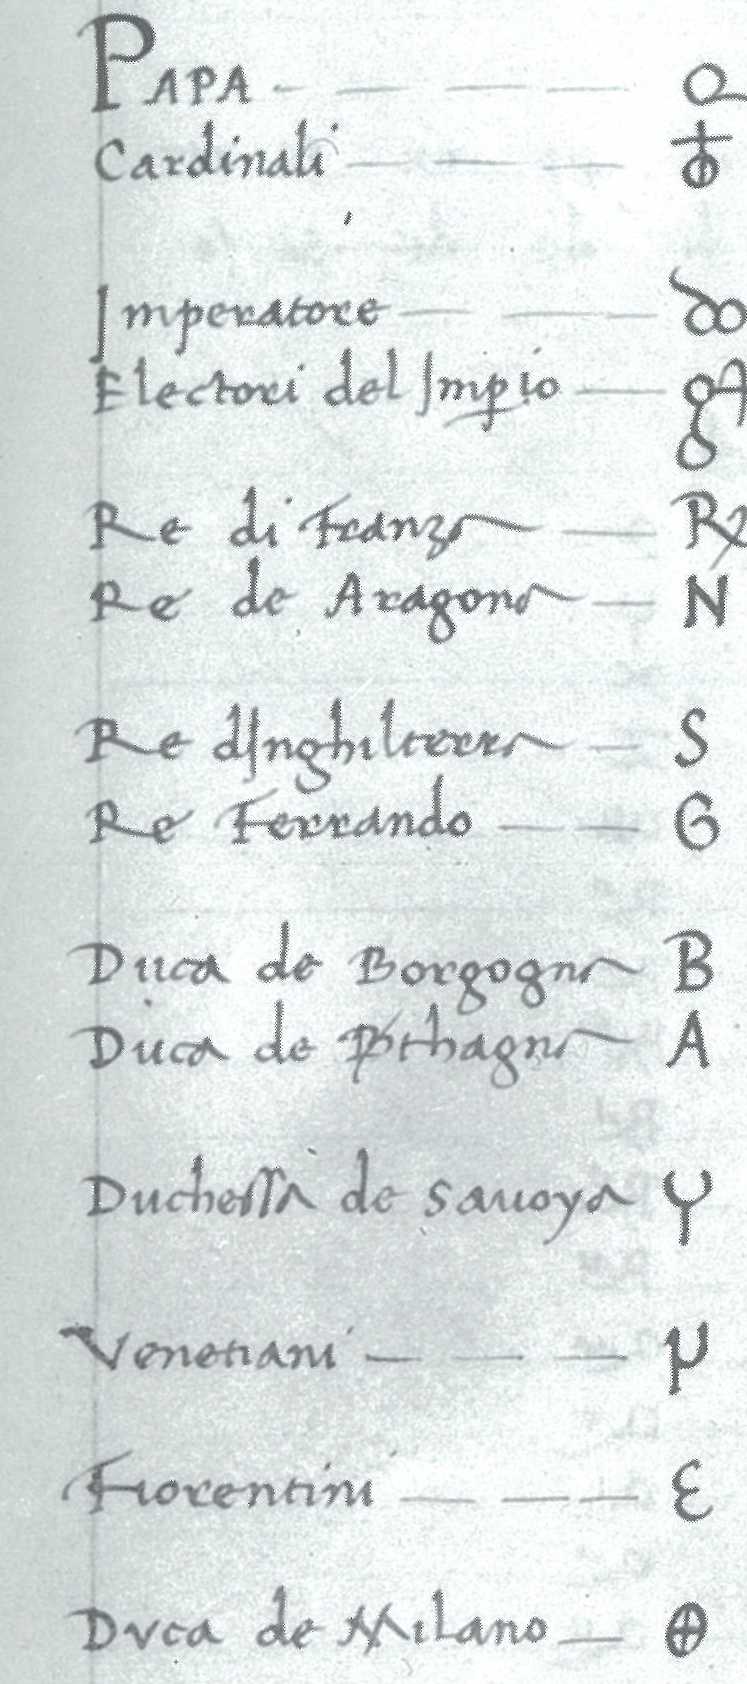 PAPA
Cardinali
Imperatore
Electori del Impio
Re di Franza R
Re de Aragona N
Re dInghilterra S
Re Ferrando G
Duca de Borgogna B
Duca de Bthagna A
Duchessa de Sauoya Y
Venetiani μ
Fiorentini ε
Dvca de Milano ⊕